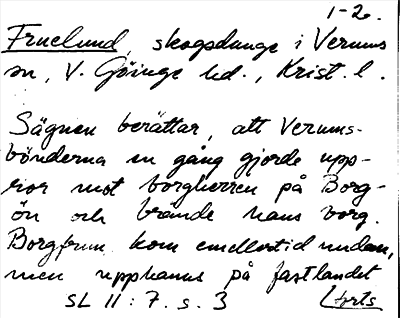 1-2.
Fruelund, skogsdunge i Verums
sn, V. Göinge hd., Krist. l.
Sägnen berättar, att Verums-
bönderna en gång gjorde upp-
ror mot borgherren på Borg-
ön och brände hans borg.
Borgfrun kom emellertid undan,
men upphanns på fastlandet
SL 11:7. s. 3 (forts